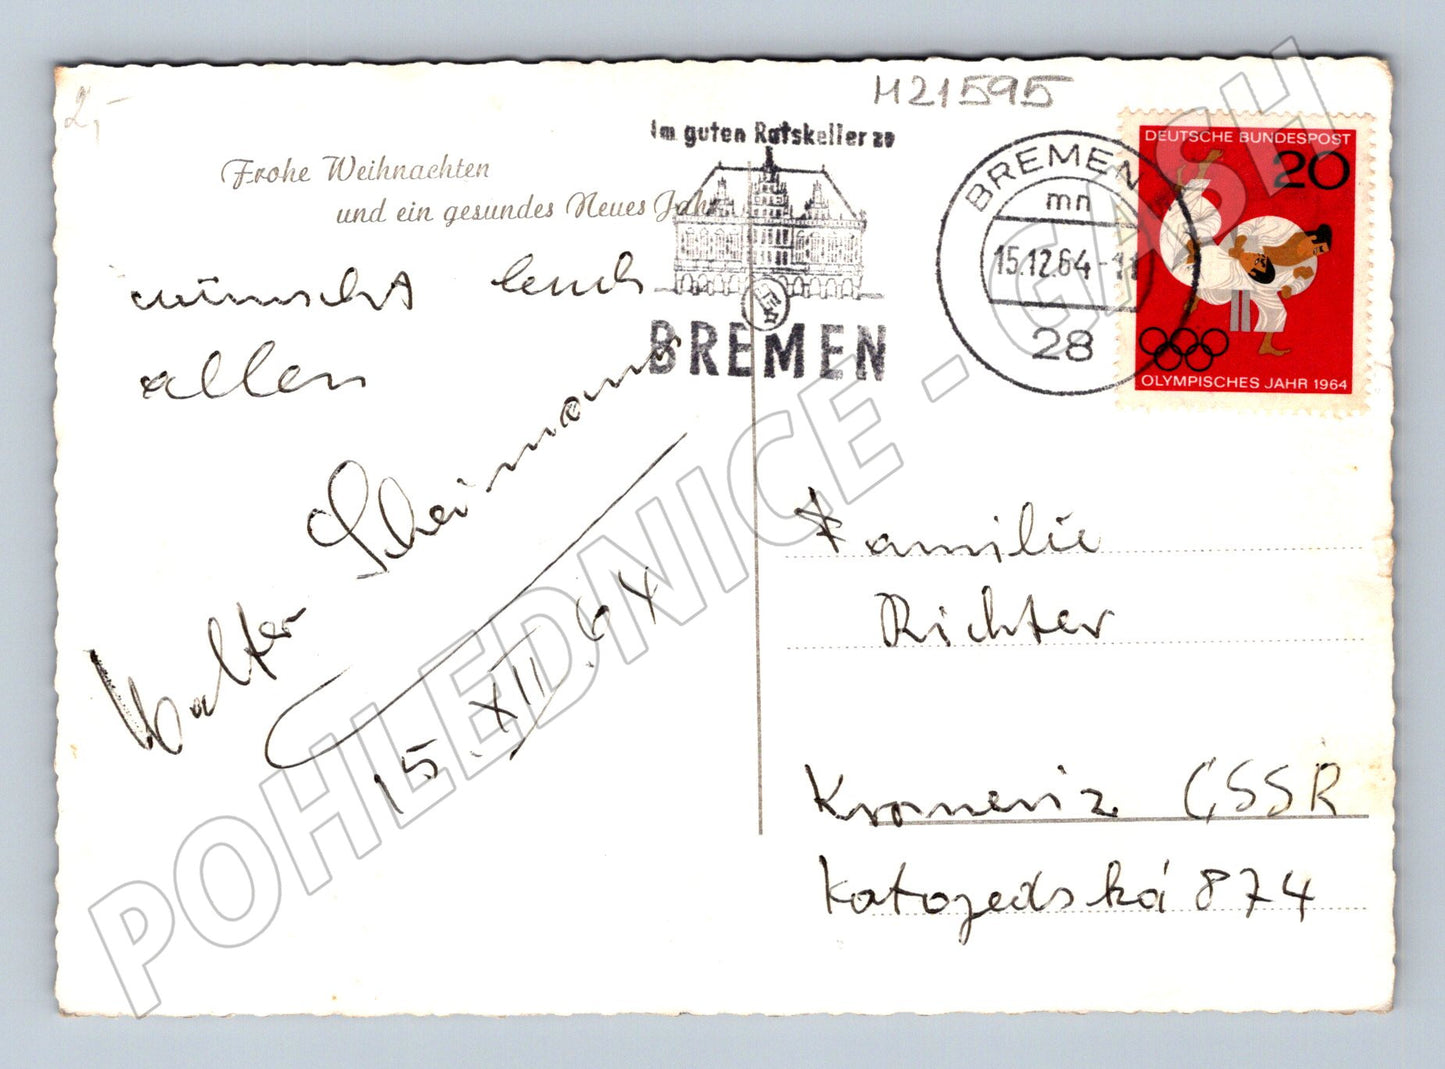 2,-
H21595
Frohe Weihnachten
und ein gesundes Neues Jahr
wünscht Euch
allen
Walter Scheimann
15.XII.64
Im guten Ratskeller zu
BREMEN
BREMEN
mn
15.12.64-11
28
DEUTSCHE BUNDESPOST
20
OLYMPISCHES JAHR 1964
Familie
Richter
Kromeriz ČSSR
Katojedská 874
POHLEDNICE - CASH